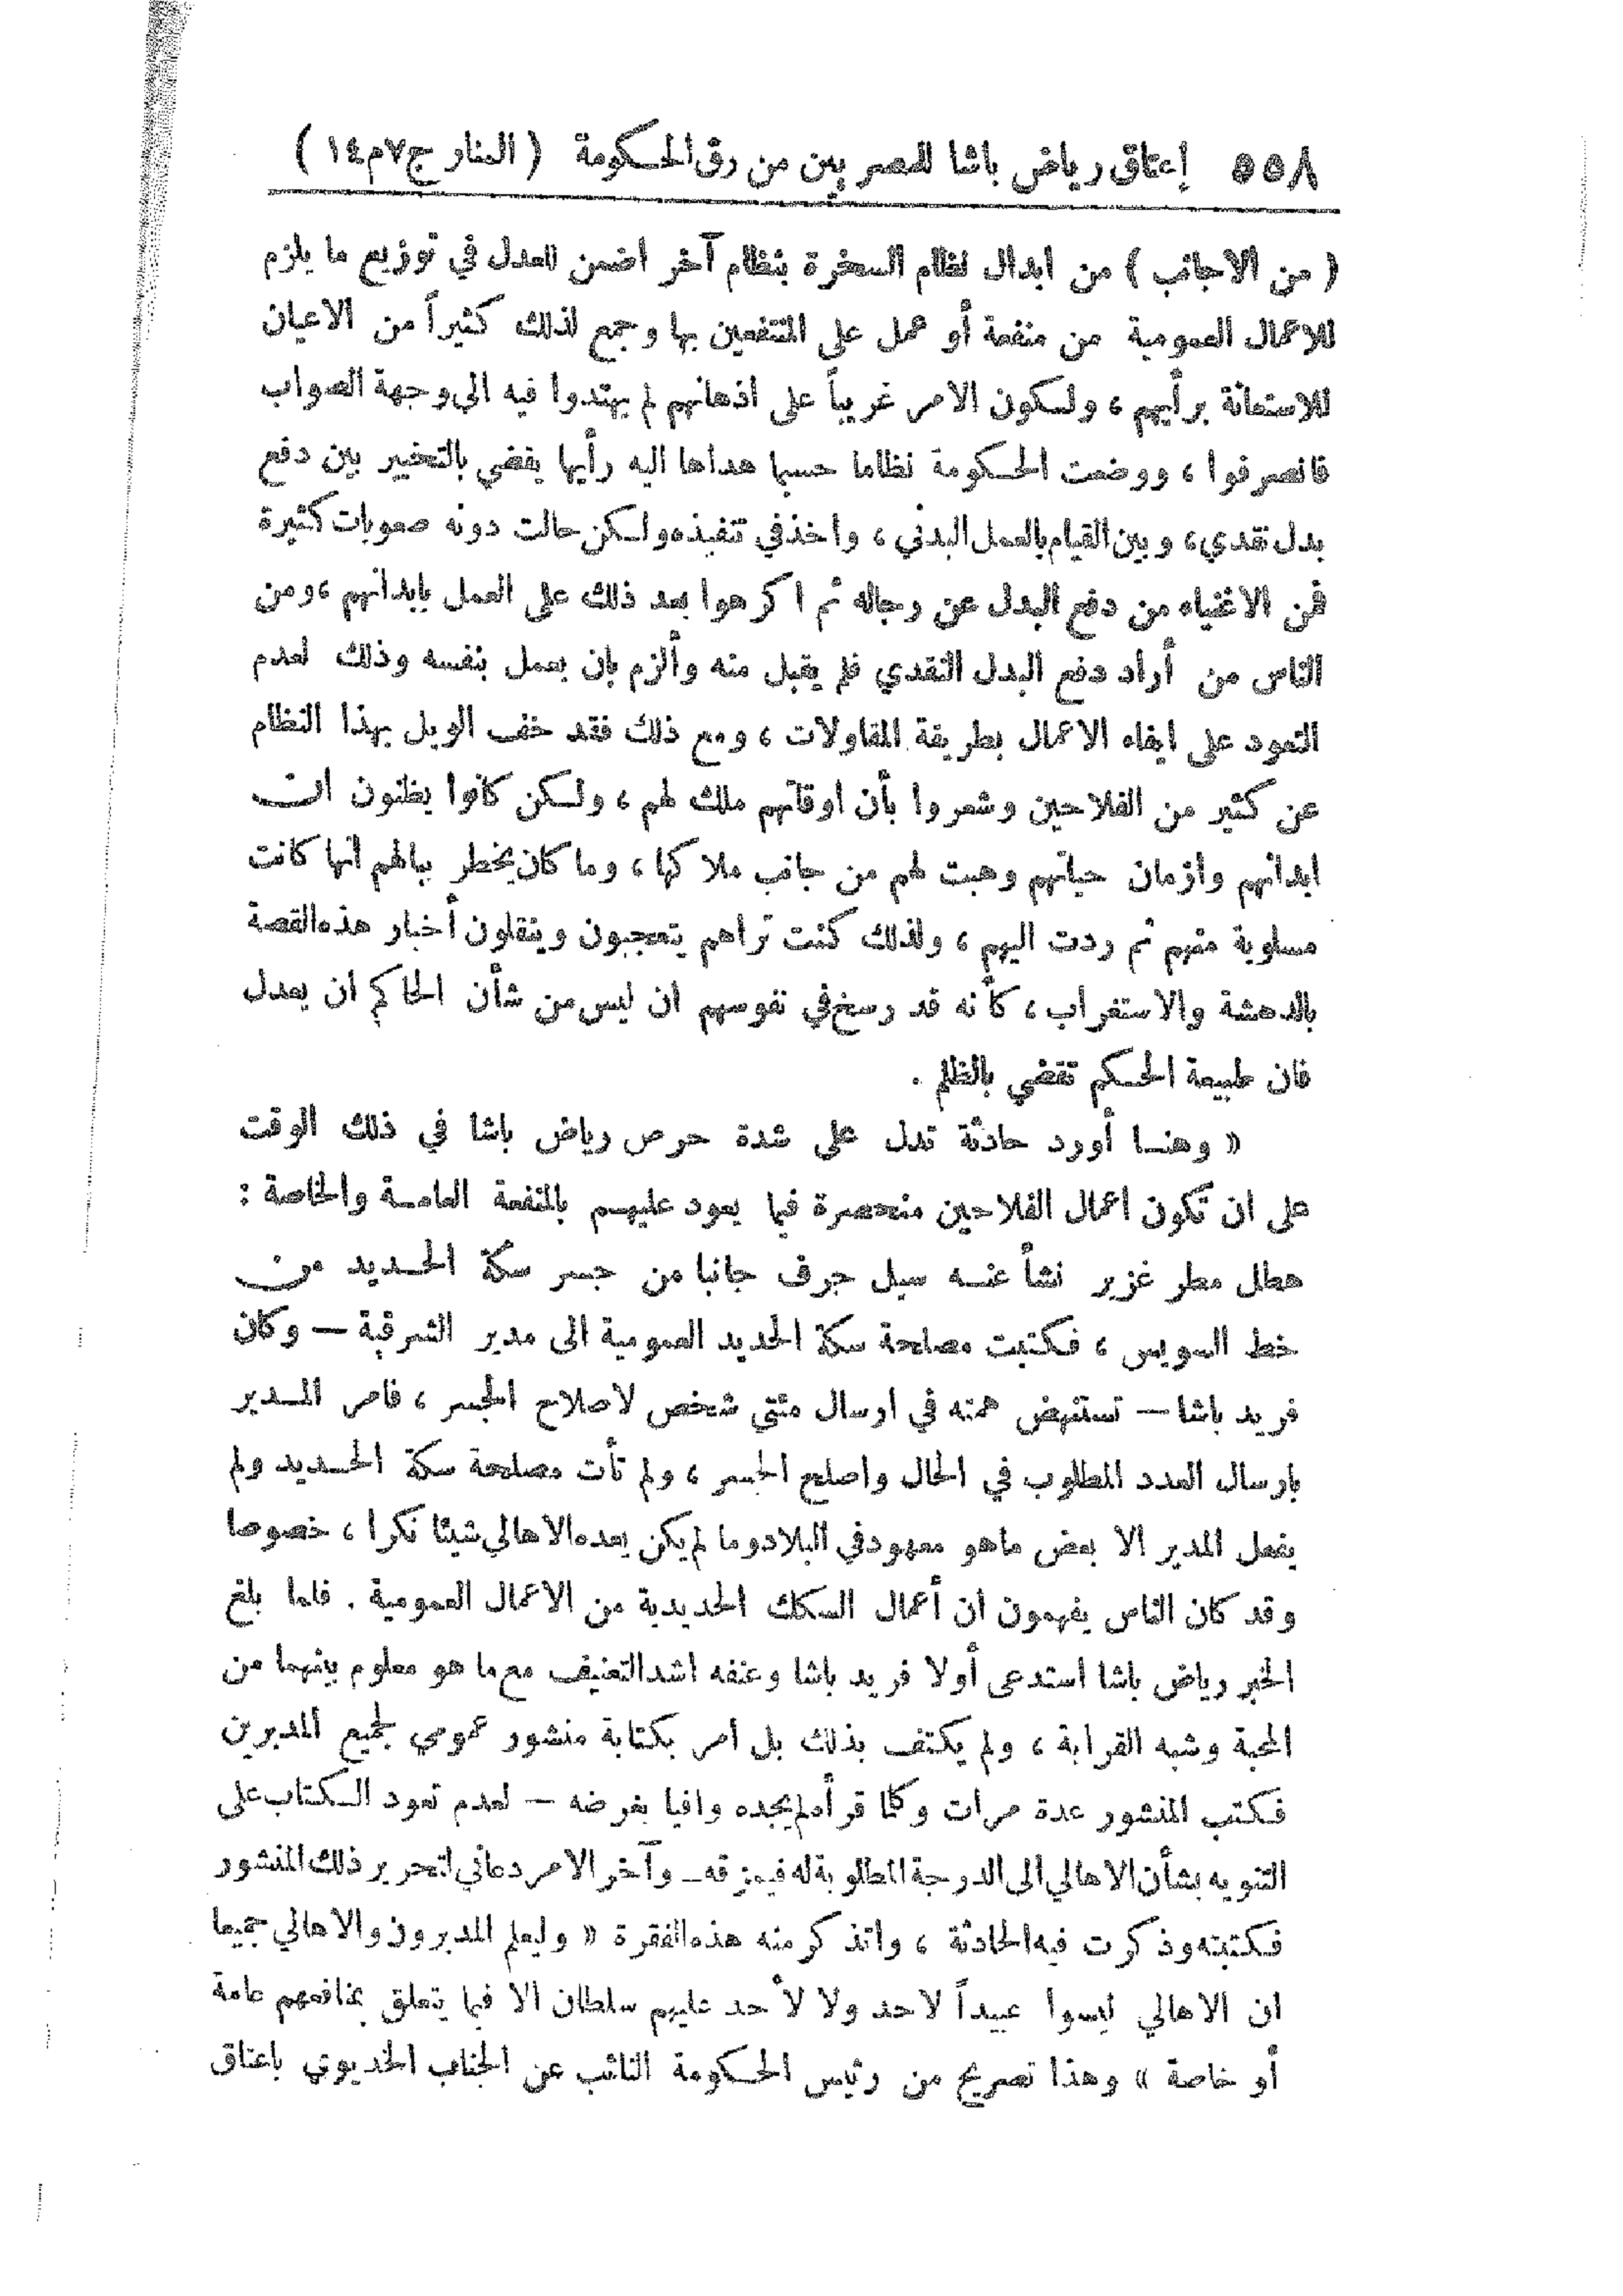 ٥٥٨ إعتاق رياض باشا للمصريين من رق الحكومة (المنار ج٧م١٤)
(من الاجانب) من ابدال نظام السخرة بنظام آخر اضمن للعدل في توزيع ما يلزم
للاعمال العمومية من منفعة أو عمل على المنتفعين بها وجمع لذلك كثيراً من الاعيان
للاستعانة برأيهم ، ولكون الامر غريباً على اذهانهم لم يهتدوا فيه الى وجهة الصواب
فانصرفوا ، ووضعت الحكومة نظاما حسبما هداها اليه رأيها يقضي بالتخيير بين دفع
بدل نقدي، وبين القيام بالعمل البدني ، واخذ في تنفيذه ولكن حالت دونه صعوبات كثيرة
فمن الاغنياء من دفع البدل عن رجاله ثم اكرهوا بعد ذلك على العمل بابدانهم ،ومن
الناس من أراد دفع البدل النقدي فلم يقبل منه وألزم بان يعمل بنفسه وذلك لعدم
التعود على ايفاء الاعمال بطريقة المقاولات ، ومع ذلك فقد خف الويل بهذا النظام
عن كثير من الفلاحين وشعروا بأن اوقاتهم ملك لهم ، ولكن كانوا يظنون ان
ابدانهم وازمان حياتهم وهبت لهم من جانب ملاكها ، وما كان يخطر ببالهم انها كانت
مسلوبة منهم ثم ردت اليهم ، ولذلك كنت تراهم يتعجبون وينقلون أخبار هذه القصة
بالدهشة والاستغراب ، كأنه قد رسخ في نفوسهم ان ليس من شأن الحاكم ان يعدل
فان طبيعة الحكم تقضي بالظلم .
« وهنا أورد حادثة تدل على شدة حرص رياض باشا في ذلك الوقت
على ان تكون اعمال الفلاحين منحصرة فيما يعود عليهم بالمنفعة العامة والخاصة :
هطل مطر غزير نشأ عنه سيل جرف جانبا من جسر سكة الحديد من
خط السويس ، فكتبت مصلحة سكة الحديد العمومية الى مدير الشرقية — وكان
فريد باشا — تستنهض همته في ارسال مئتي شخص لاصلاح الجسر ، فامر المدير
بارسال العدد المطلوب في الحال واصلح الجسر ، ولم تأت مصلحة سكة الحديد ولم
يفعل المدير الا بعض ماهو معهود في البلاد وما لم يكن يعده الاهالي شيئا نكرا ، خصوصا
وقد كان الناس يفهمون ان أعمال السكك الحديدية من الاعمال العمومية . فلما بلغ
الخبر رياض باشا استدعى أولا فريد باشا وعنفه اشد التعنيف مع ما هو معلوم بينهما من
المحبة وشبه القرابة ، ولم يكتف بذلك بل امر بكتابة منشور عمومي لجميع المديرين
فكتب المنشور عدة مرات وكلما قرأه لم يجده وافيا بغرضه — لعدم تعود الكتاب على
التنويه بشأن الاهالي الى الدرجة المطلوبة له فيمزقه— وآخر الامر دعاني لتحرير ذلك المنشور
فكتبته وذكرت فيه الحادثة ، واتذكر منه هذه الفقرة « وليعلم المديرون والاهالي جميعا
ان الاهالي ليسوا عبيداً لاحد ولا لأحد عليهم سلطان الا فيما يتعلق بمنافعهم عامة
أو خاصة » وهذا تصريح من رئيس الحكومة النائب عن الجناب الخديوي باعتاق